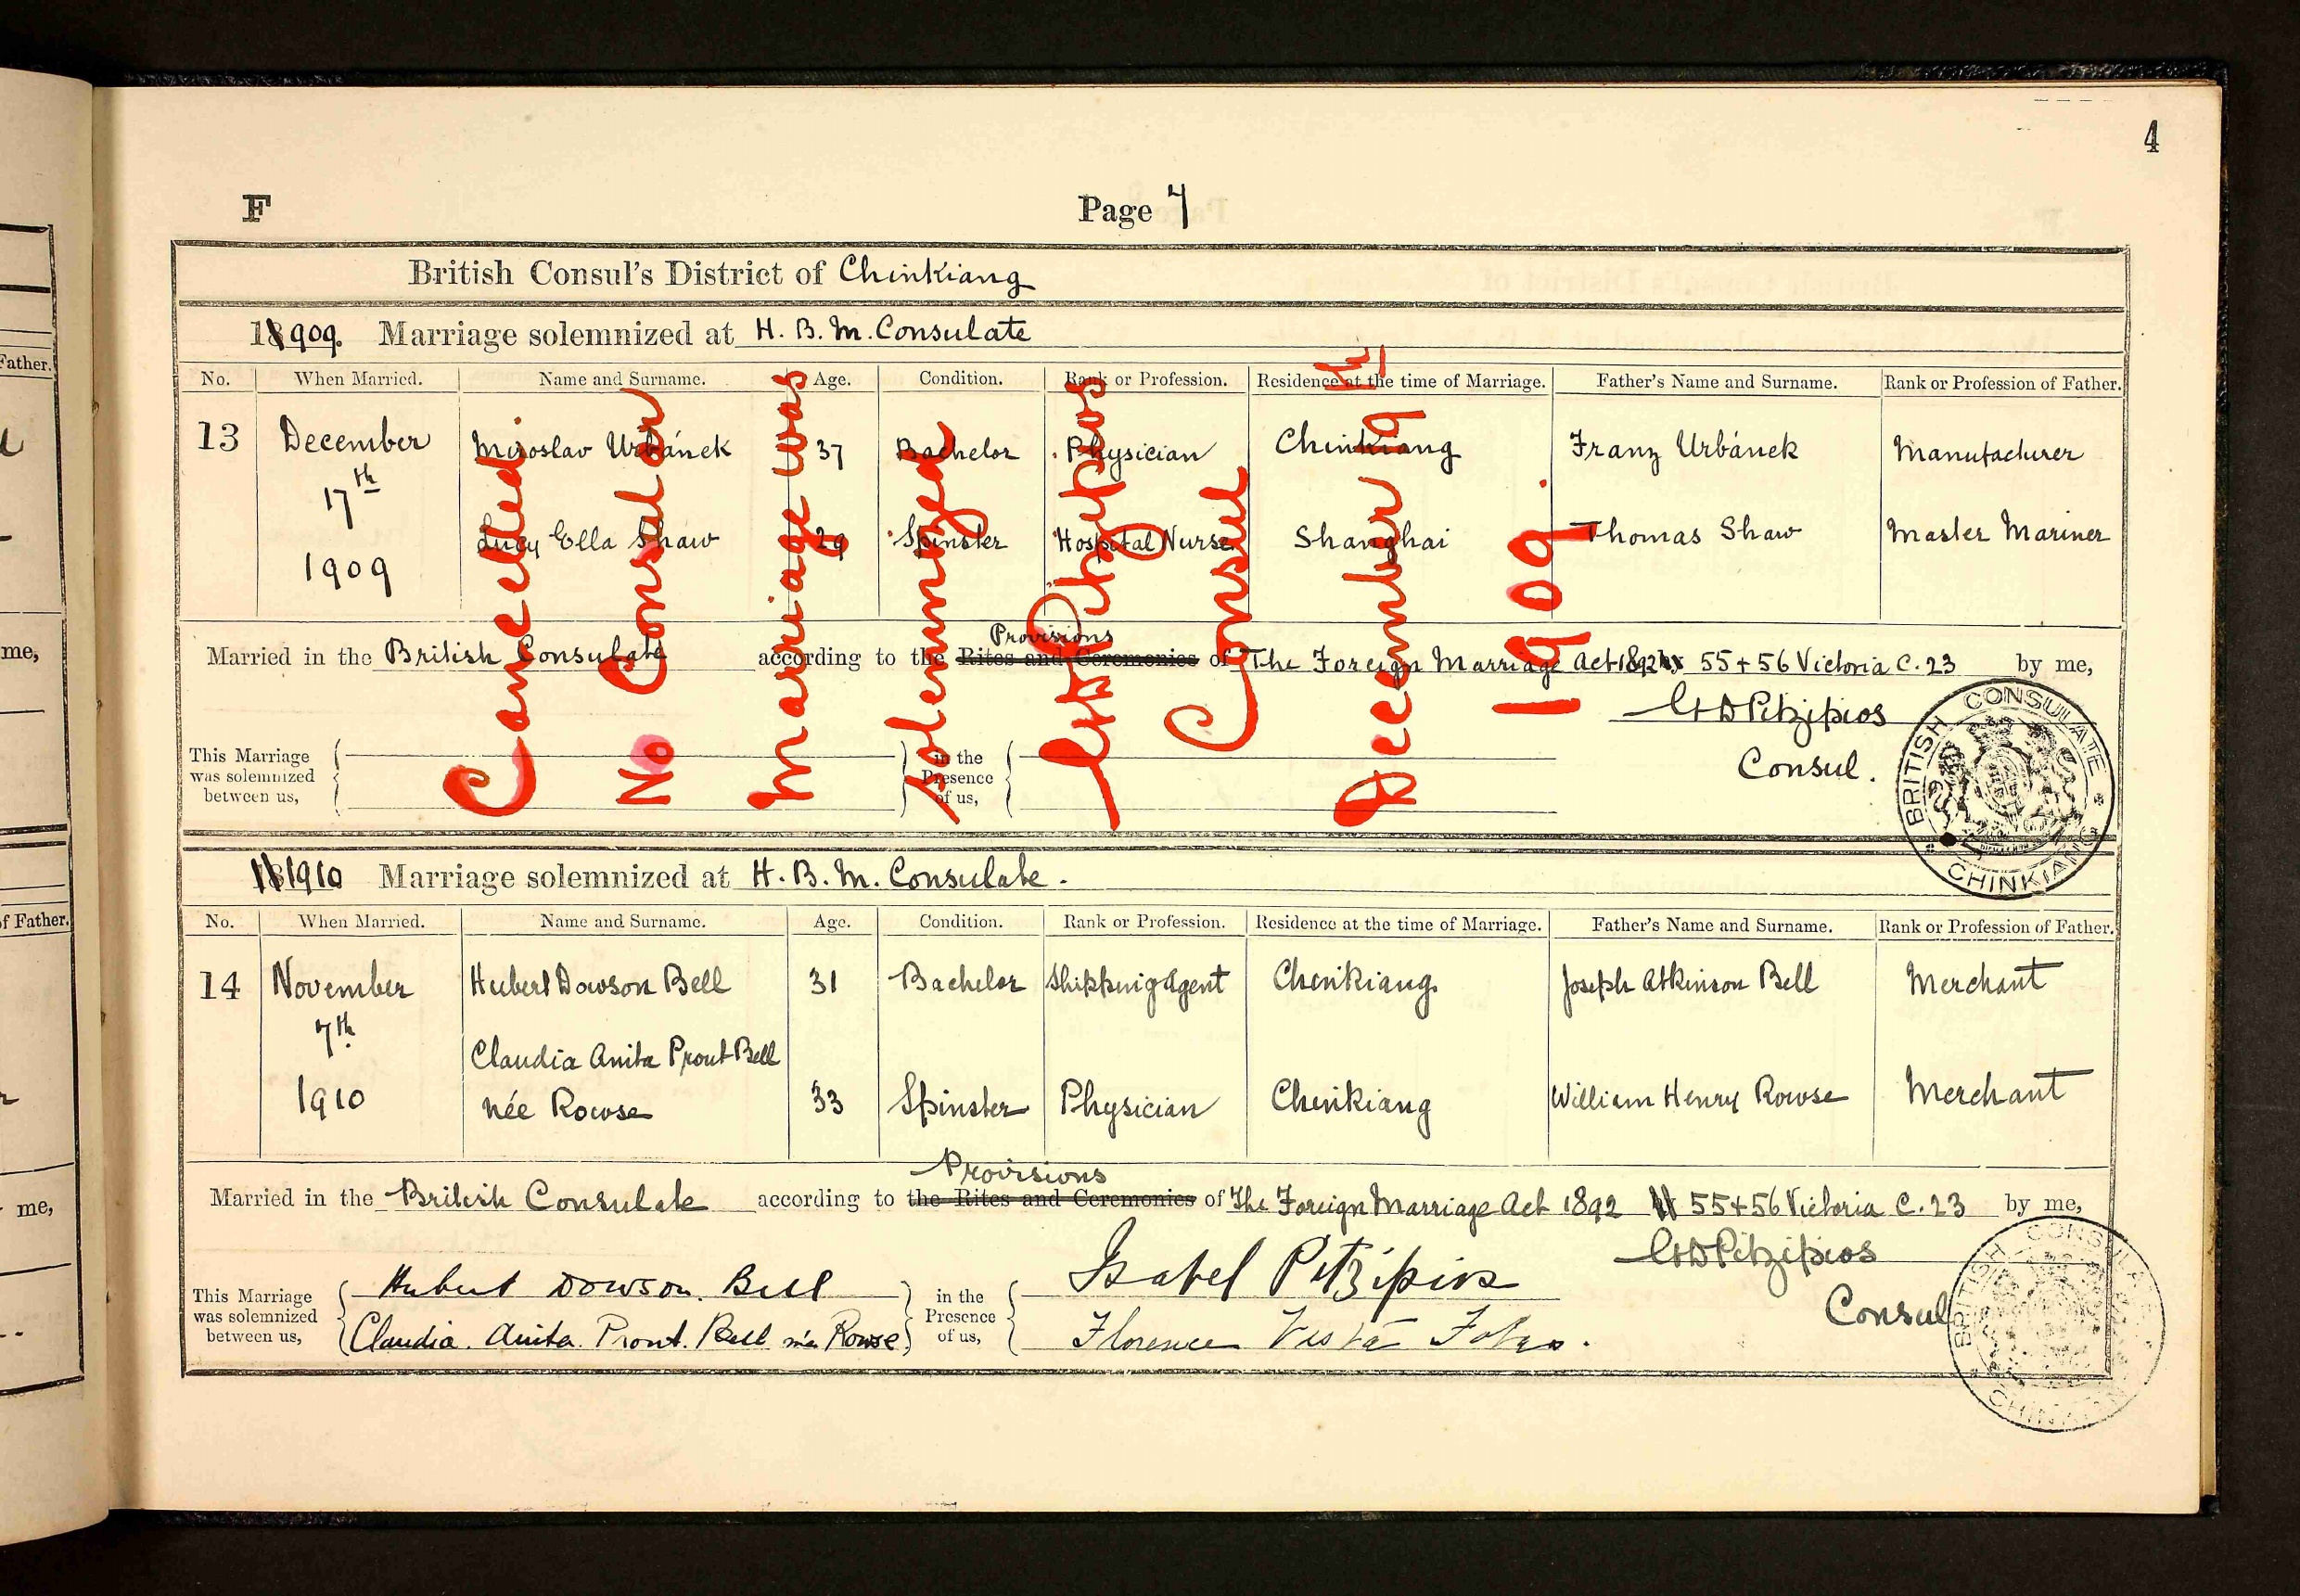 4
F
Page 7
British Consul's District of Chinkiang
1909. Marriage solemnized at H. B. M. Consulate
No. When Married. Name and Surname. Age. Condition. Rank or Profession. Residence at the time of Marriage. Father's Name and Surname. Rank or Profession of Father.
13 December Miroslav Urbánek 37 Bachelor Physician Chinkiang Franz Urbánek Manufacturer
17th
Lucy Ella Shaw 29 Spinster Hospital Nurse Shanghai Thomas Shaw Master Mariner
1909
Provisions
Married in the British Consulate according to the Rites and Ceremonies of The Foreign Marriage Act 1892 55 + 56 Victoria C. 23 by me,
Pitzipios
Consul.
This Marriage
was solemnized
between us,
in the
Presence
of us,
Cancelled.
No Consular
marriage was
solemnized
Pitzipios
Consul
December 9th
1909.
BRITISH CONSULATE
CHINKIANG
1910 Marriage solemnized at H. B. M. Consulate.
No. When Married. Name and Surname. Age. Condition. Rank or Profession. Residence at the time of Marriage. Father's Name and Surname. Rank or Profession of Father.
14 November Hubert Dowson Bell 31 Bachelor Shipping Agent Chinkiang Joseph Atkinson Bell Merchant
7th
Claudia Anita Prout Bell
1910 née Rowse 33 Spinster Physician Chinkiang William Henry Rowse Merchant
Provisions
Married in the British Consulate according to the Rites and Ceremonies of The Foreign Marriage Act 1892 55 + 56 Victoria C. 23 by me,
Pitzipios
Consul
This Marriage
was solemnized
between us,
Hubert Dowson. Bell
Claudia. Anita. Prout. Bell née Rowse
in the
Presence
of us,
Isabel Pitzipios
Florence
BRITISH CONSULATE
CHINKIANG
Father.
me,
of Father.
me,